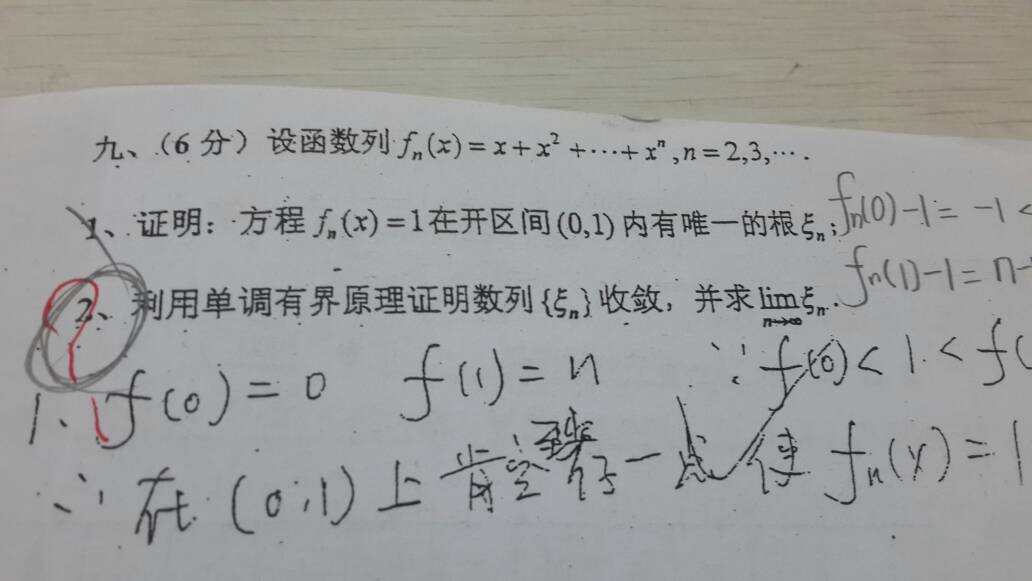 九、（6 分）设函数列 fₙ(x) = x + x² + ⋯ + xⁿ, n = 2,3,⋯.
1、证明：方程 fₙ(x) = 1 在开区间 (0,1) 内有唯一的根 ξₙ；
fₙ(0)-1 = -1 <
2、利用单调有界原理证明数列 {ξₙ} 收敛，并求 lim ξₙ.
n→∞
fₙ(1)-1 = n-
1、f(0) = 0 f(1) = n ∵ f(0) < 1 < f(
∴ 在 (0,1) 上 一点 使 fₙ(x) = 1